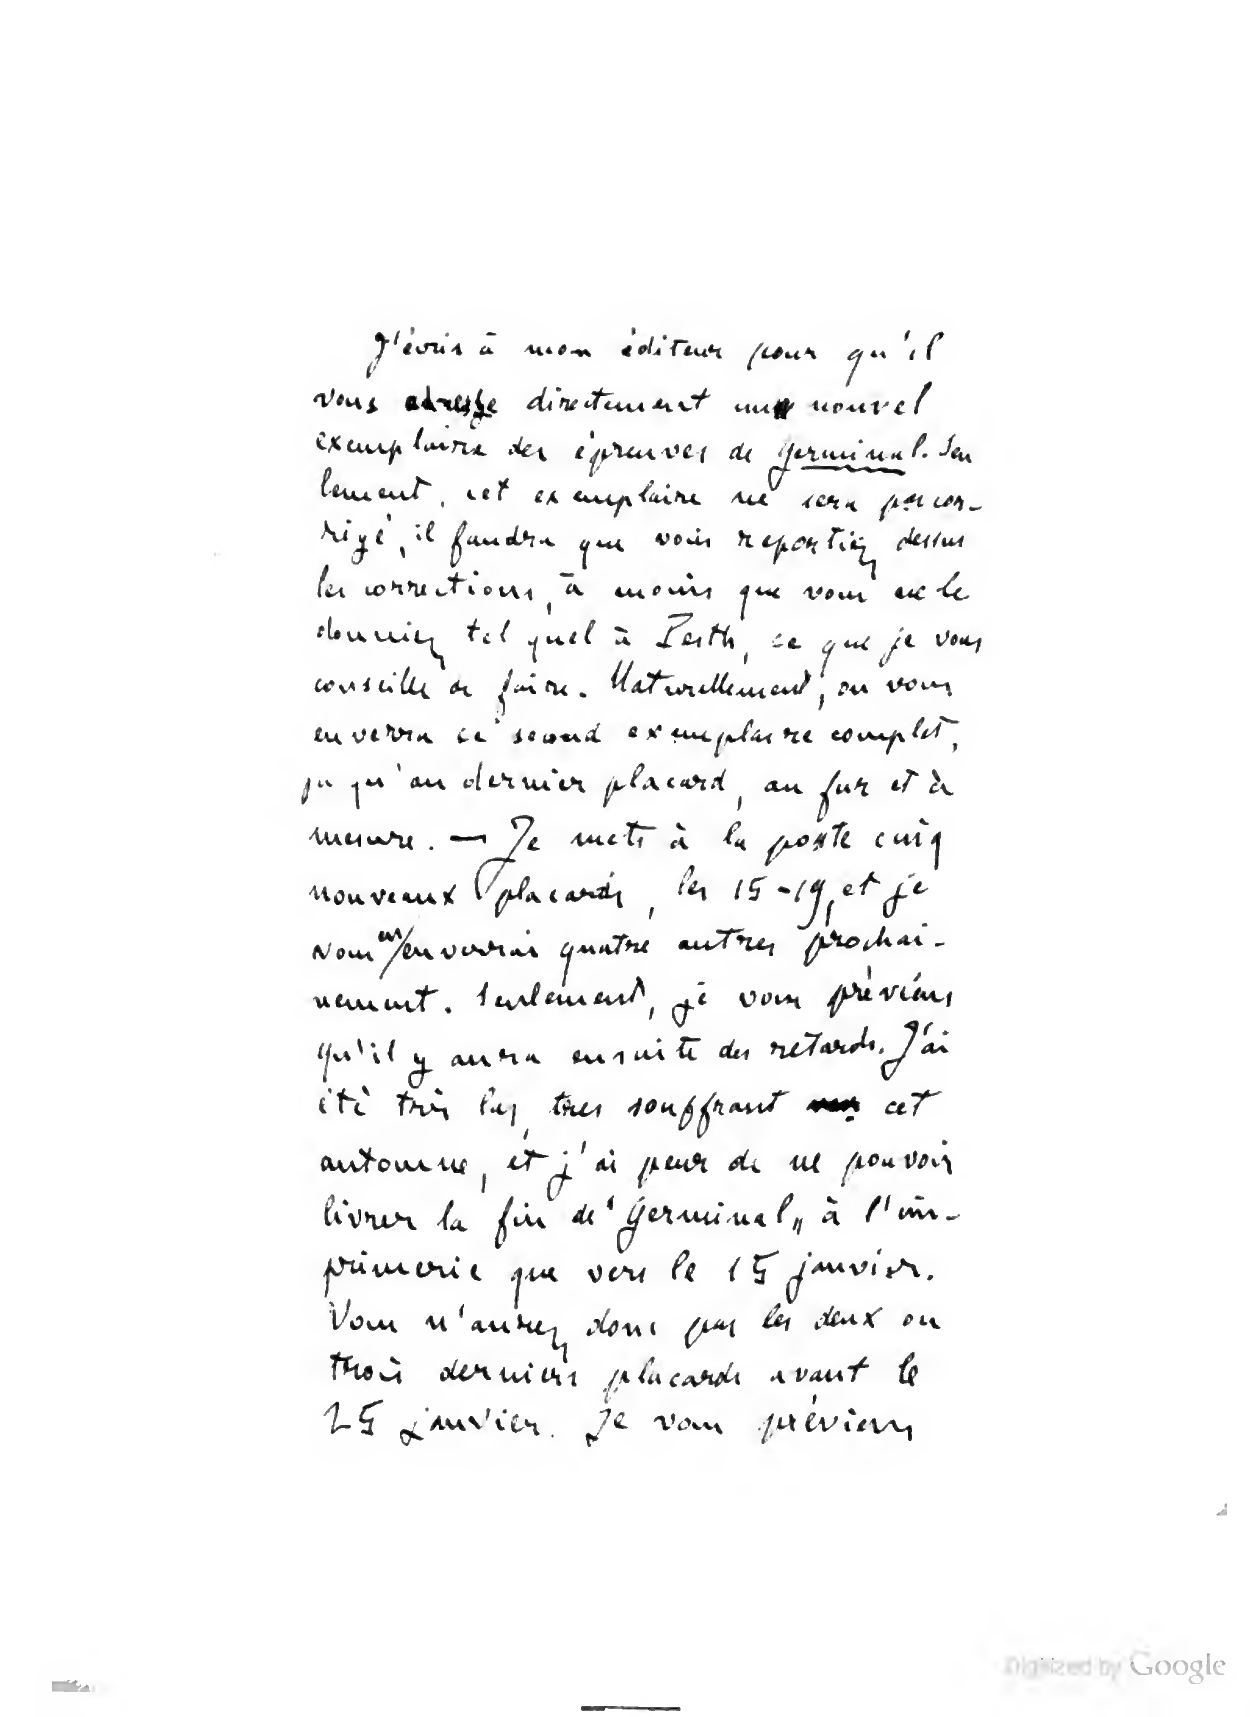 J'écris à mon éditeur pour qu'il
vous adresse directement un nouvel
exemplaire des épreuves de Germinal. Seu
lement, cet exemplaire ne sera pas cor-
rigé, il faudra que vous reportiez dessus
les corrections, à moins que vous ne le
donniez tel quel à Pesth, ce que je vous
conseille de faire. Naturellement, on vous
enverra ce second exemplaire complet,
jusqu'au dernier placard, au fur et à
mesure. — Je mets à la poste cinq
nouveaux placards, les 15-19, et je
vous en enverrai quatre autres prochai-
nement. Seulement, je vous préviens
qu'il y aura ensuite des retards. J'ai
été très las, très souffrant cet
automne, et j'ai peur de ne pouvoir
livrer la fin de "Germinal„ à l'im-
primerie que vers le 15 janvier.
Vous n'aurez donc pas les deux ou
trois derniers placards avant le
25 janvier. Je vous préviens
Digitized by Google